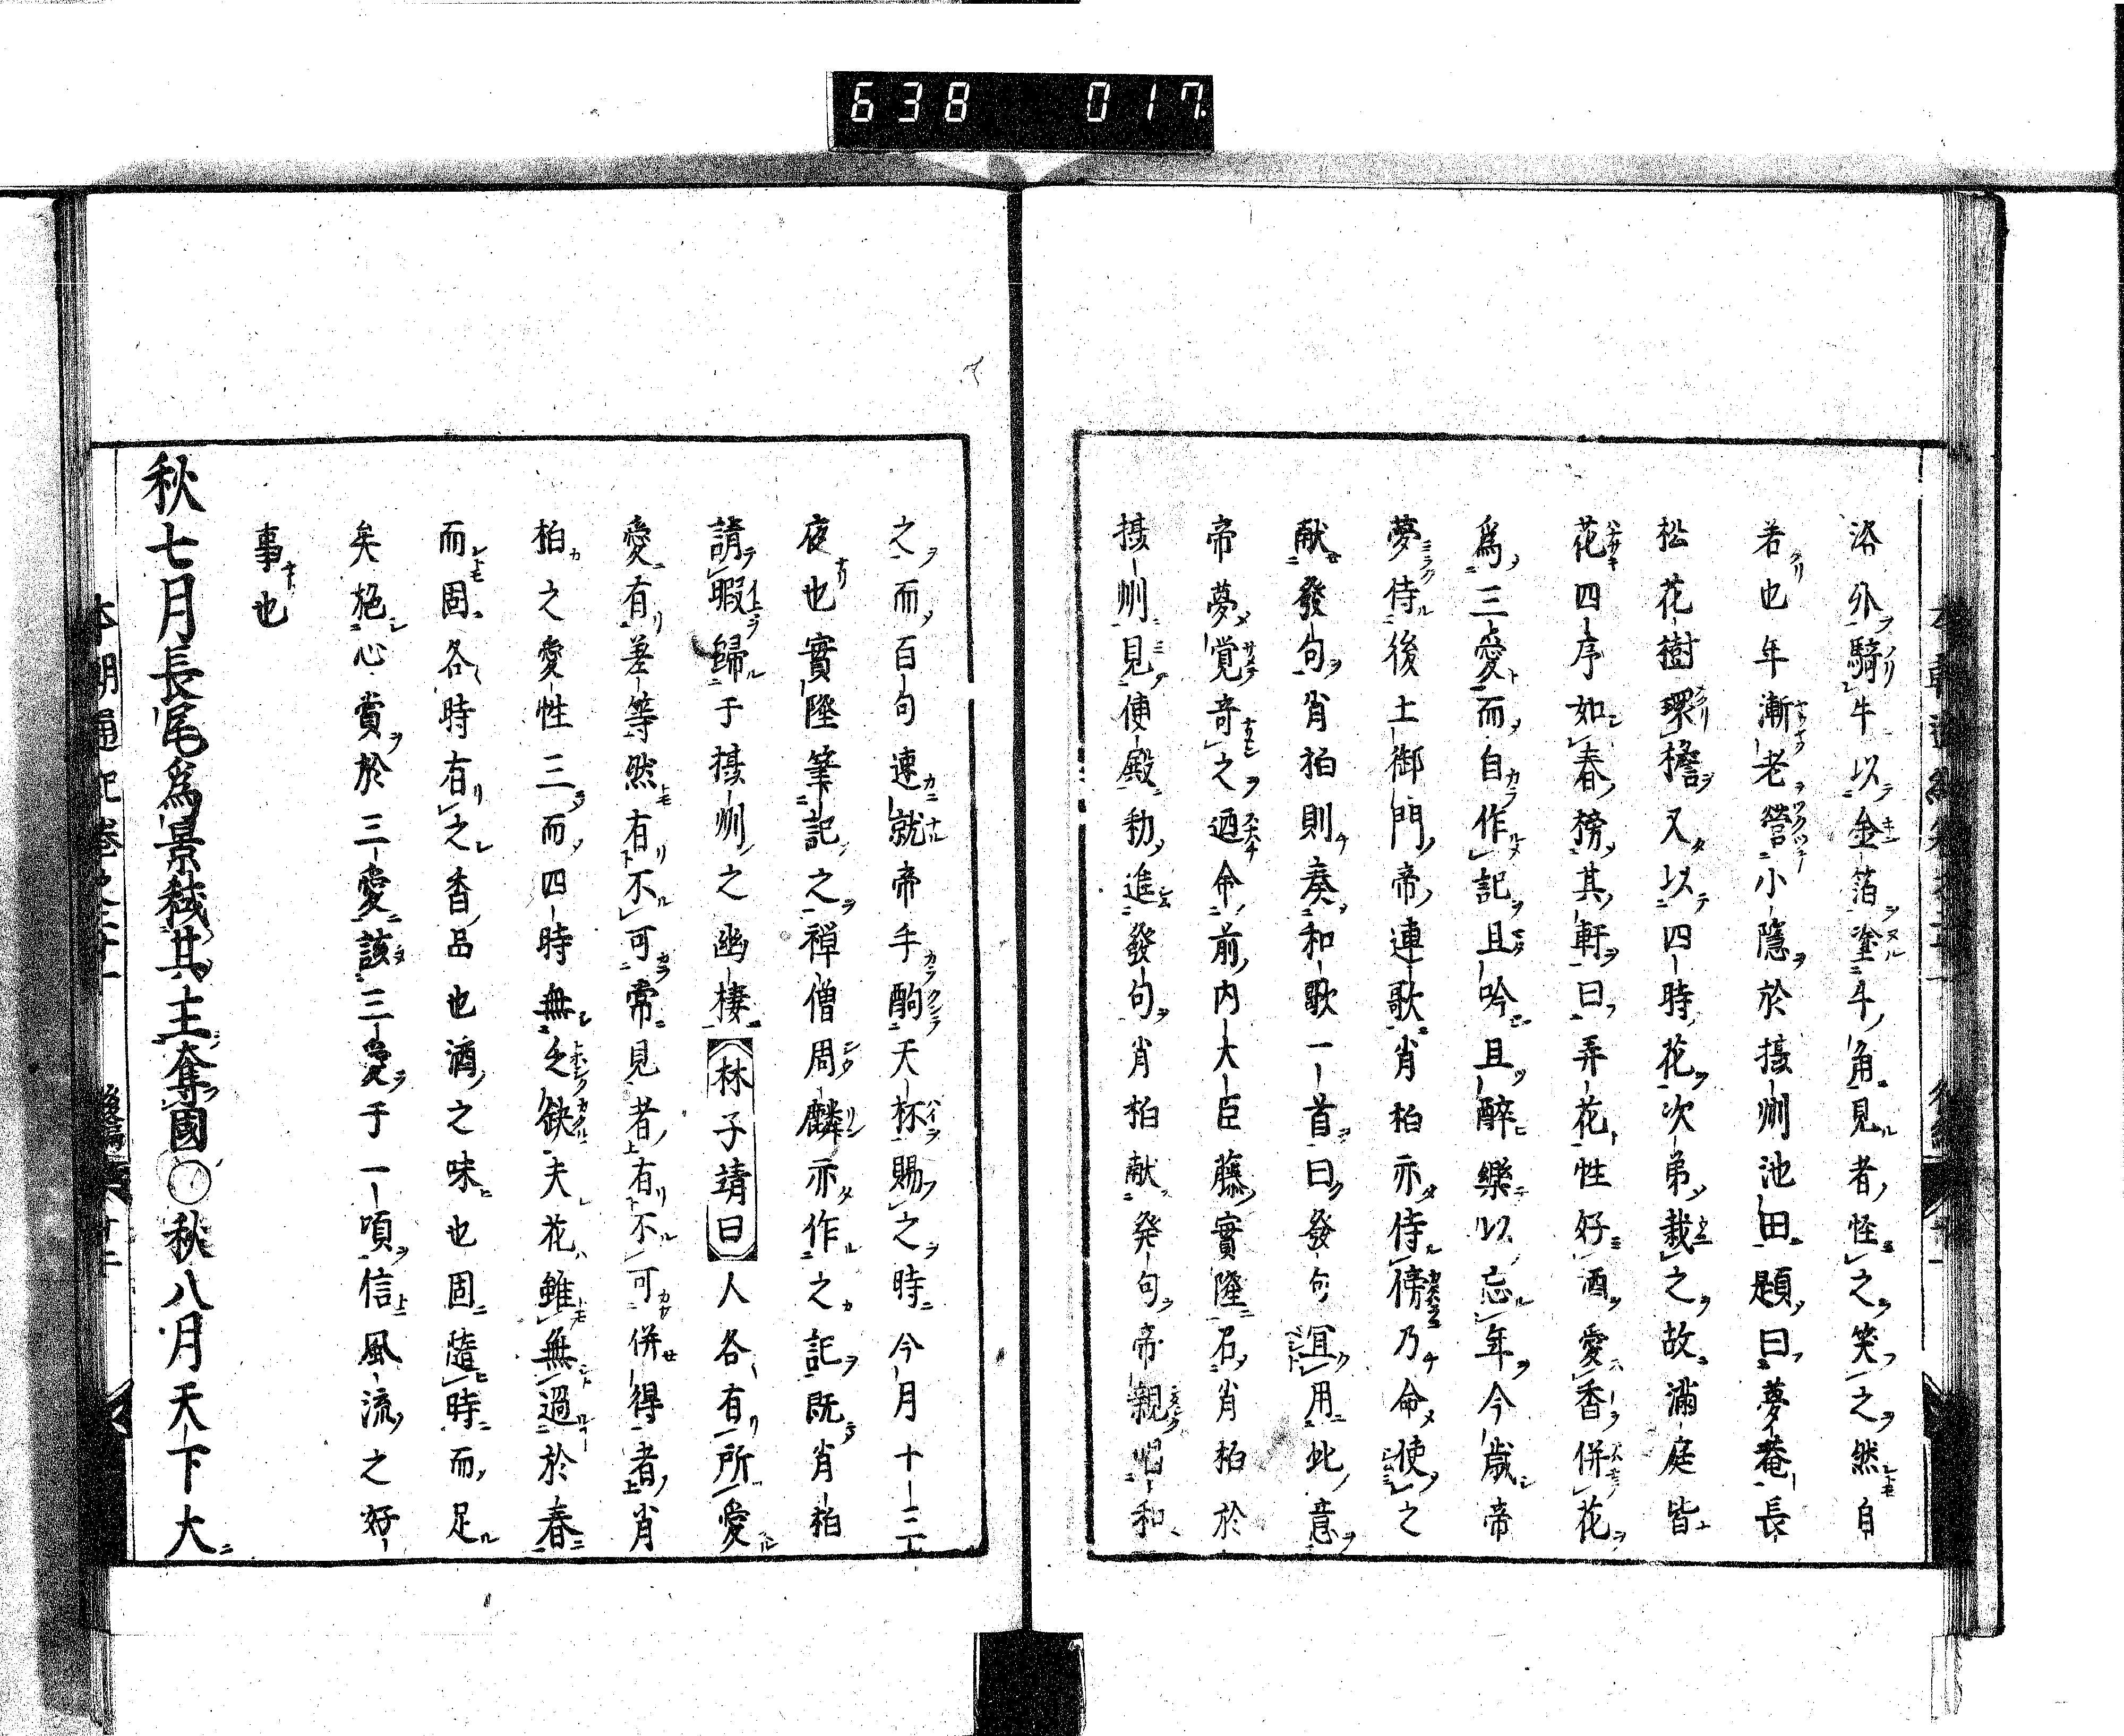 638 017
洛外騎牛以金箔塗牛角見者怪之笑之然自
若也年漸老營小隱於攝州池田題曰夢菴長
松花樹環檐又以四時花次第栽之故滿庭皆
花四序如春榜其軒曰弄花性好酒愛香併花
爲三愛而自作記且吟且醉樂以忘年今歳帝
夢侍後土御門帝連歌肖柏亦侍傍乃命使之
献發句肖柏則奏和歌一首曰發句宜用此意
帝夢覚竒之廼命前内大臣藤實隆召肖柏於
攝州見便殿勅進發句肖柏献発句帝親賜和
之而百句速就帝手酌天杯賜之時今月十三
夜也實隆筆記之禅僧周麟亦作之記既肖柏
請暇歸于攝州之幽棲林子靖曰人各有所愛
愛有差等然有不可常見者有不可併得者肖
柏之愛性三而四時無乏缺夫花雖無過於春
而固各時有之香品也酒之味也固隨時而足
矣施心賞於三愛該三愛于一項信風流之好
事也
秋七月長尾爲景弑其主奪國〇秋八月天下大
本朝通紀卷之二十一 後編 廿二